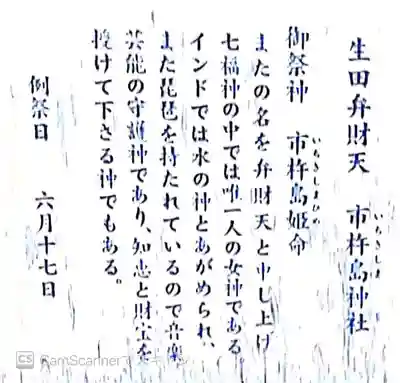 生田弁財天 市杵島神社
いちきしま
御祭神 市杵島姫命
いちきしまひめの
またの名を弁財天と申し上げ
七福神の中では唯一人の女神である。
インドでは水の神とあがめられ、
また琵琶を持たれているので音楽
芸能の守護神であり、知恵と財宝を
授けて下さる神でもある。
例祭日 六月十七日
CS CamScanner